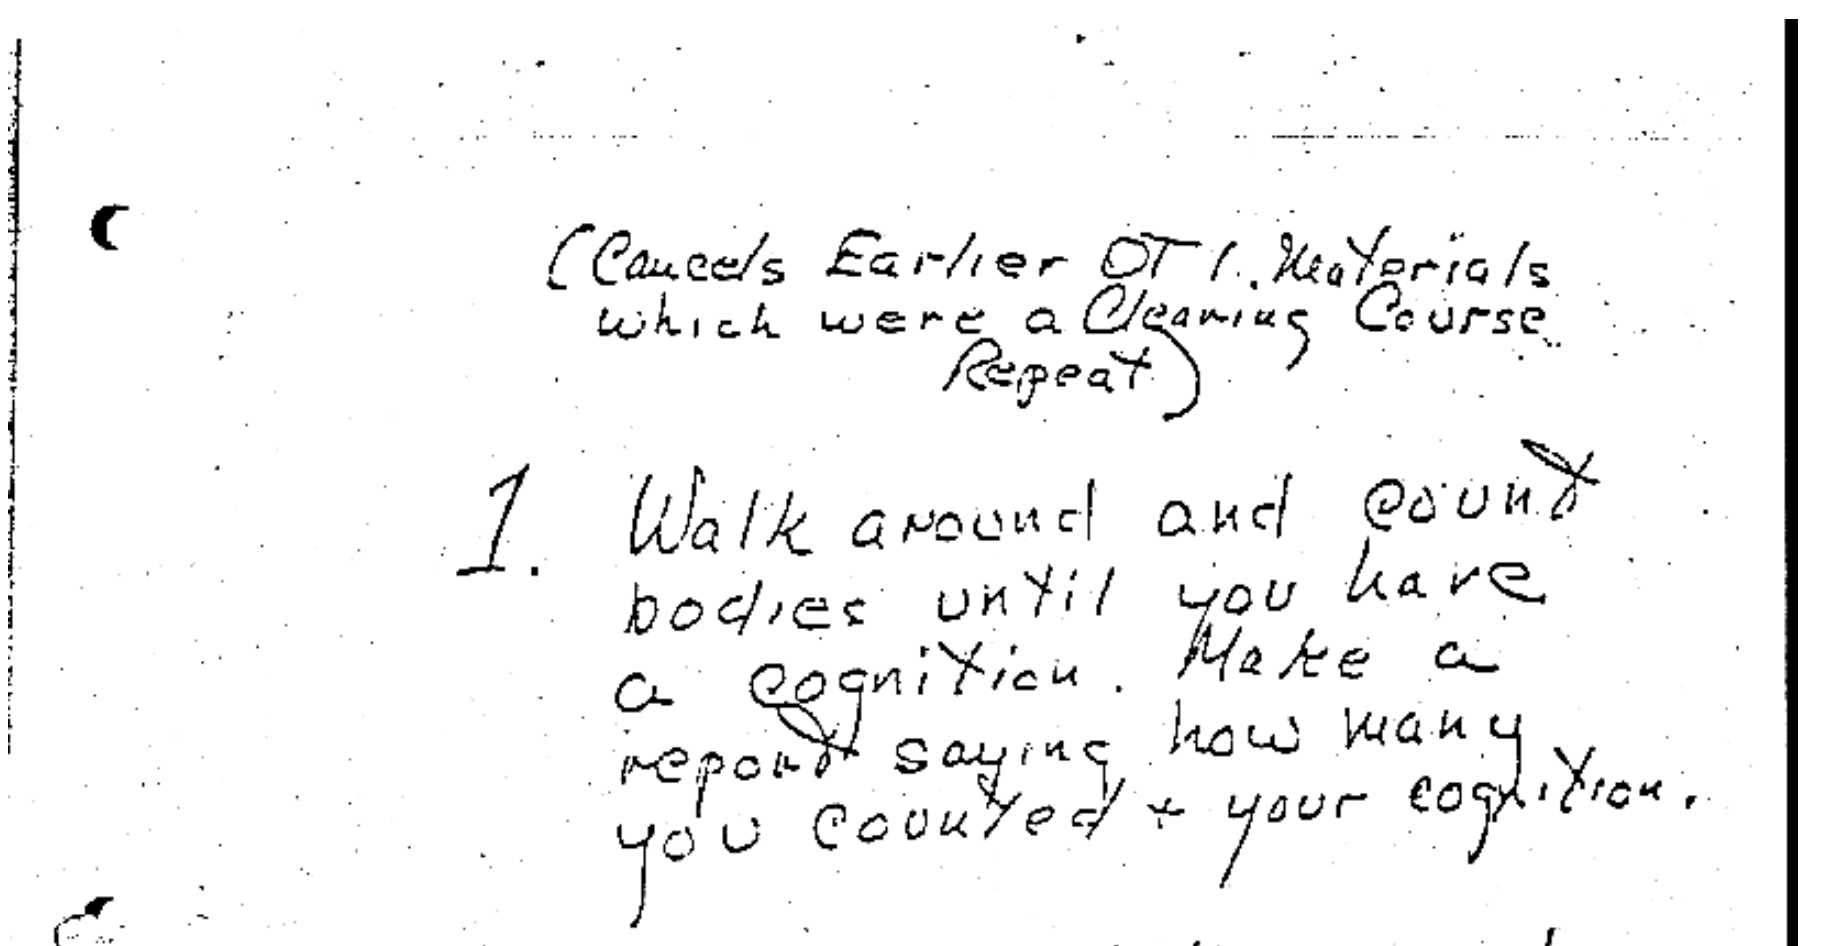 (Cancels Earlier OT 1. Materials
which were a Clearing Course
Repeat)
1. Walk around and count
bodies until you have
a cognition. Make a
report saying how many
you counted + your cognition.